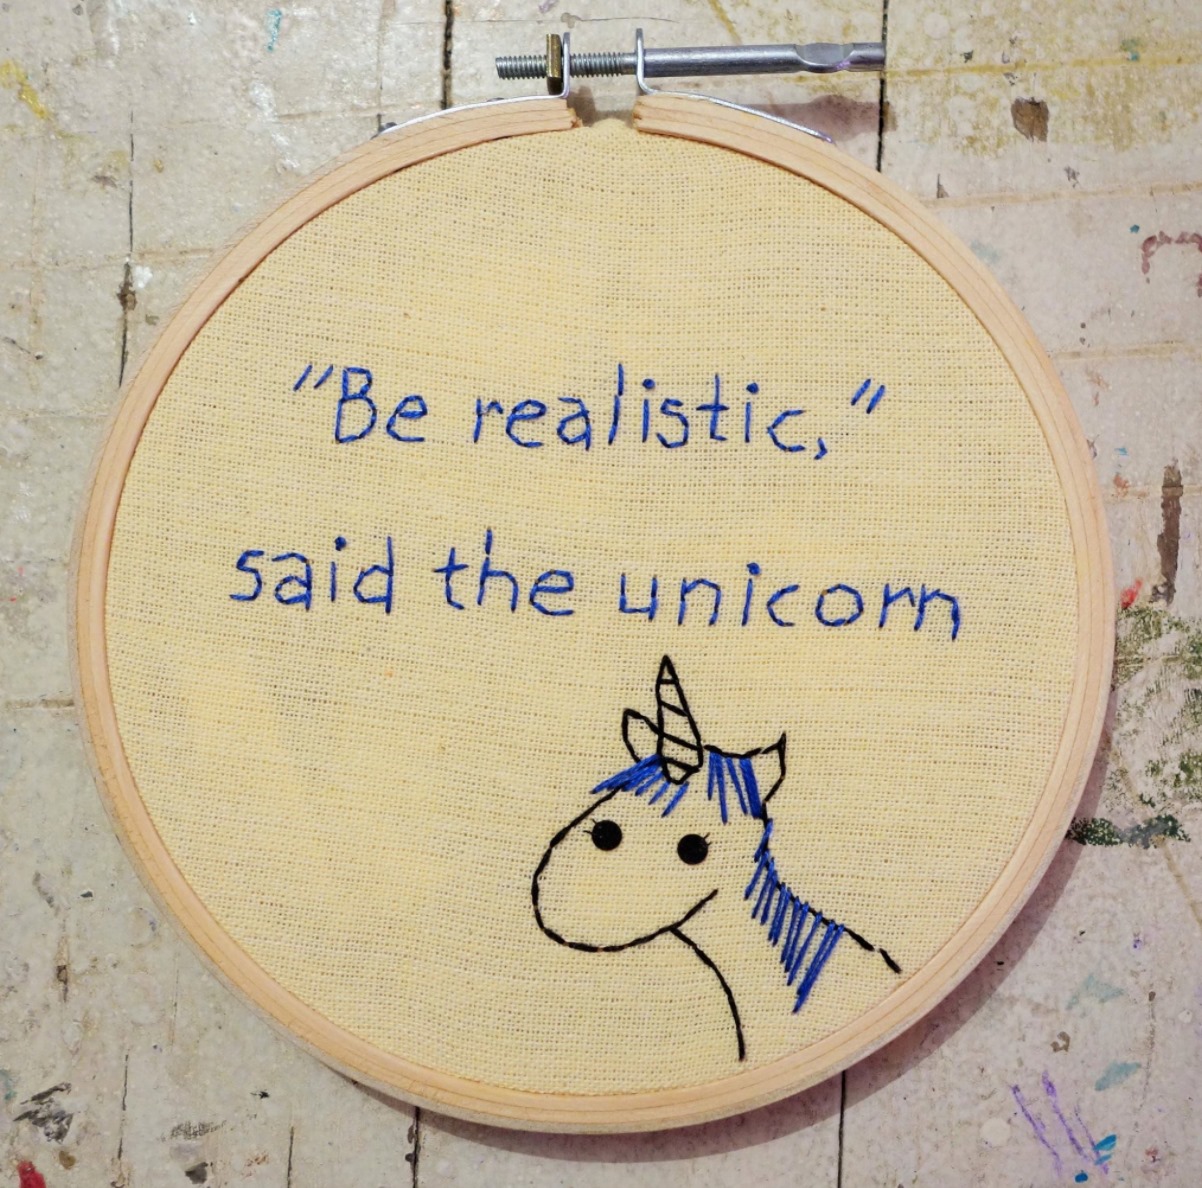 "Be realistic,"
said the unicorn